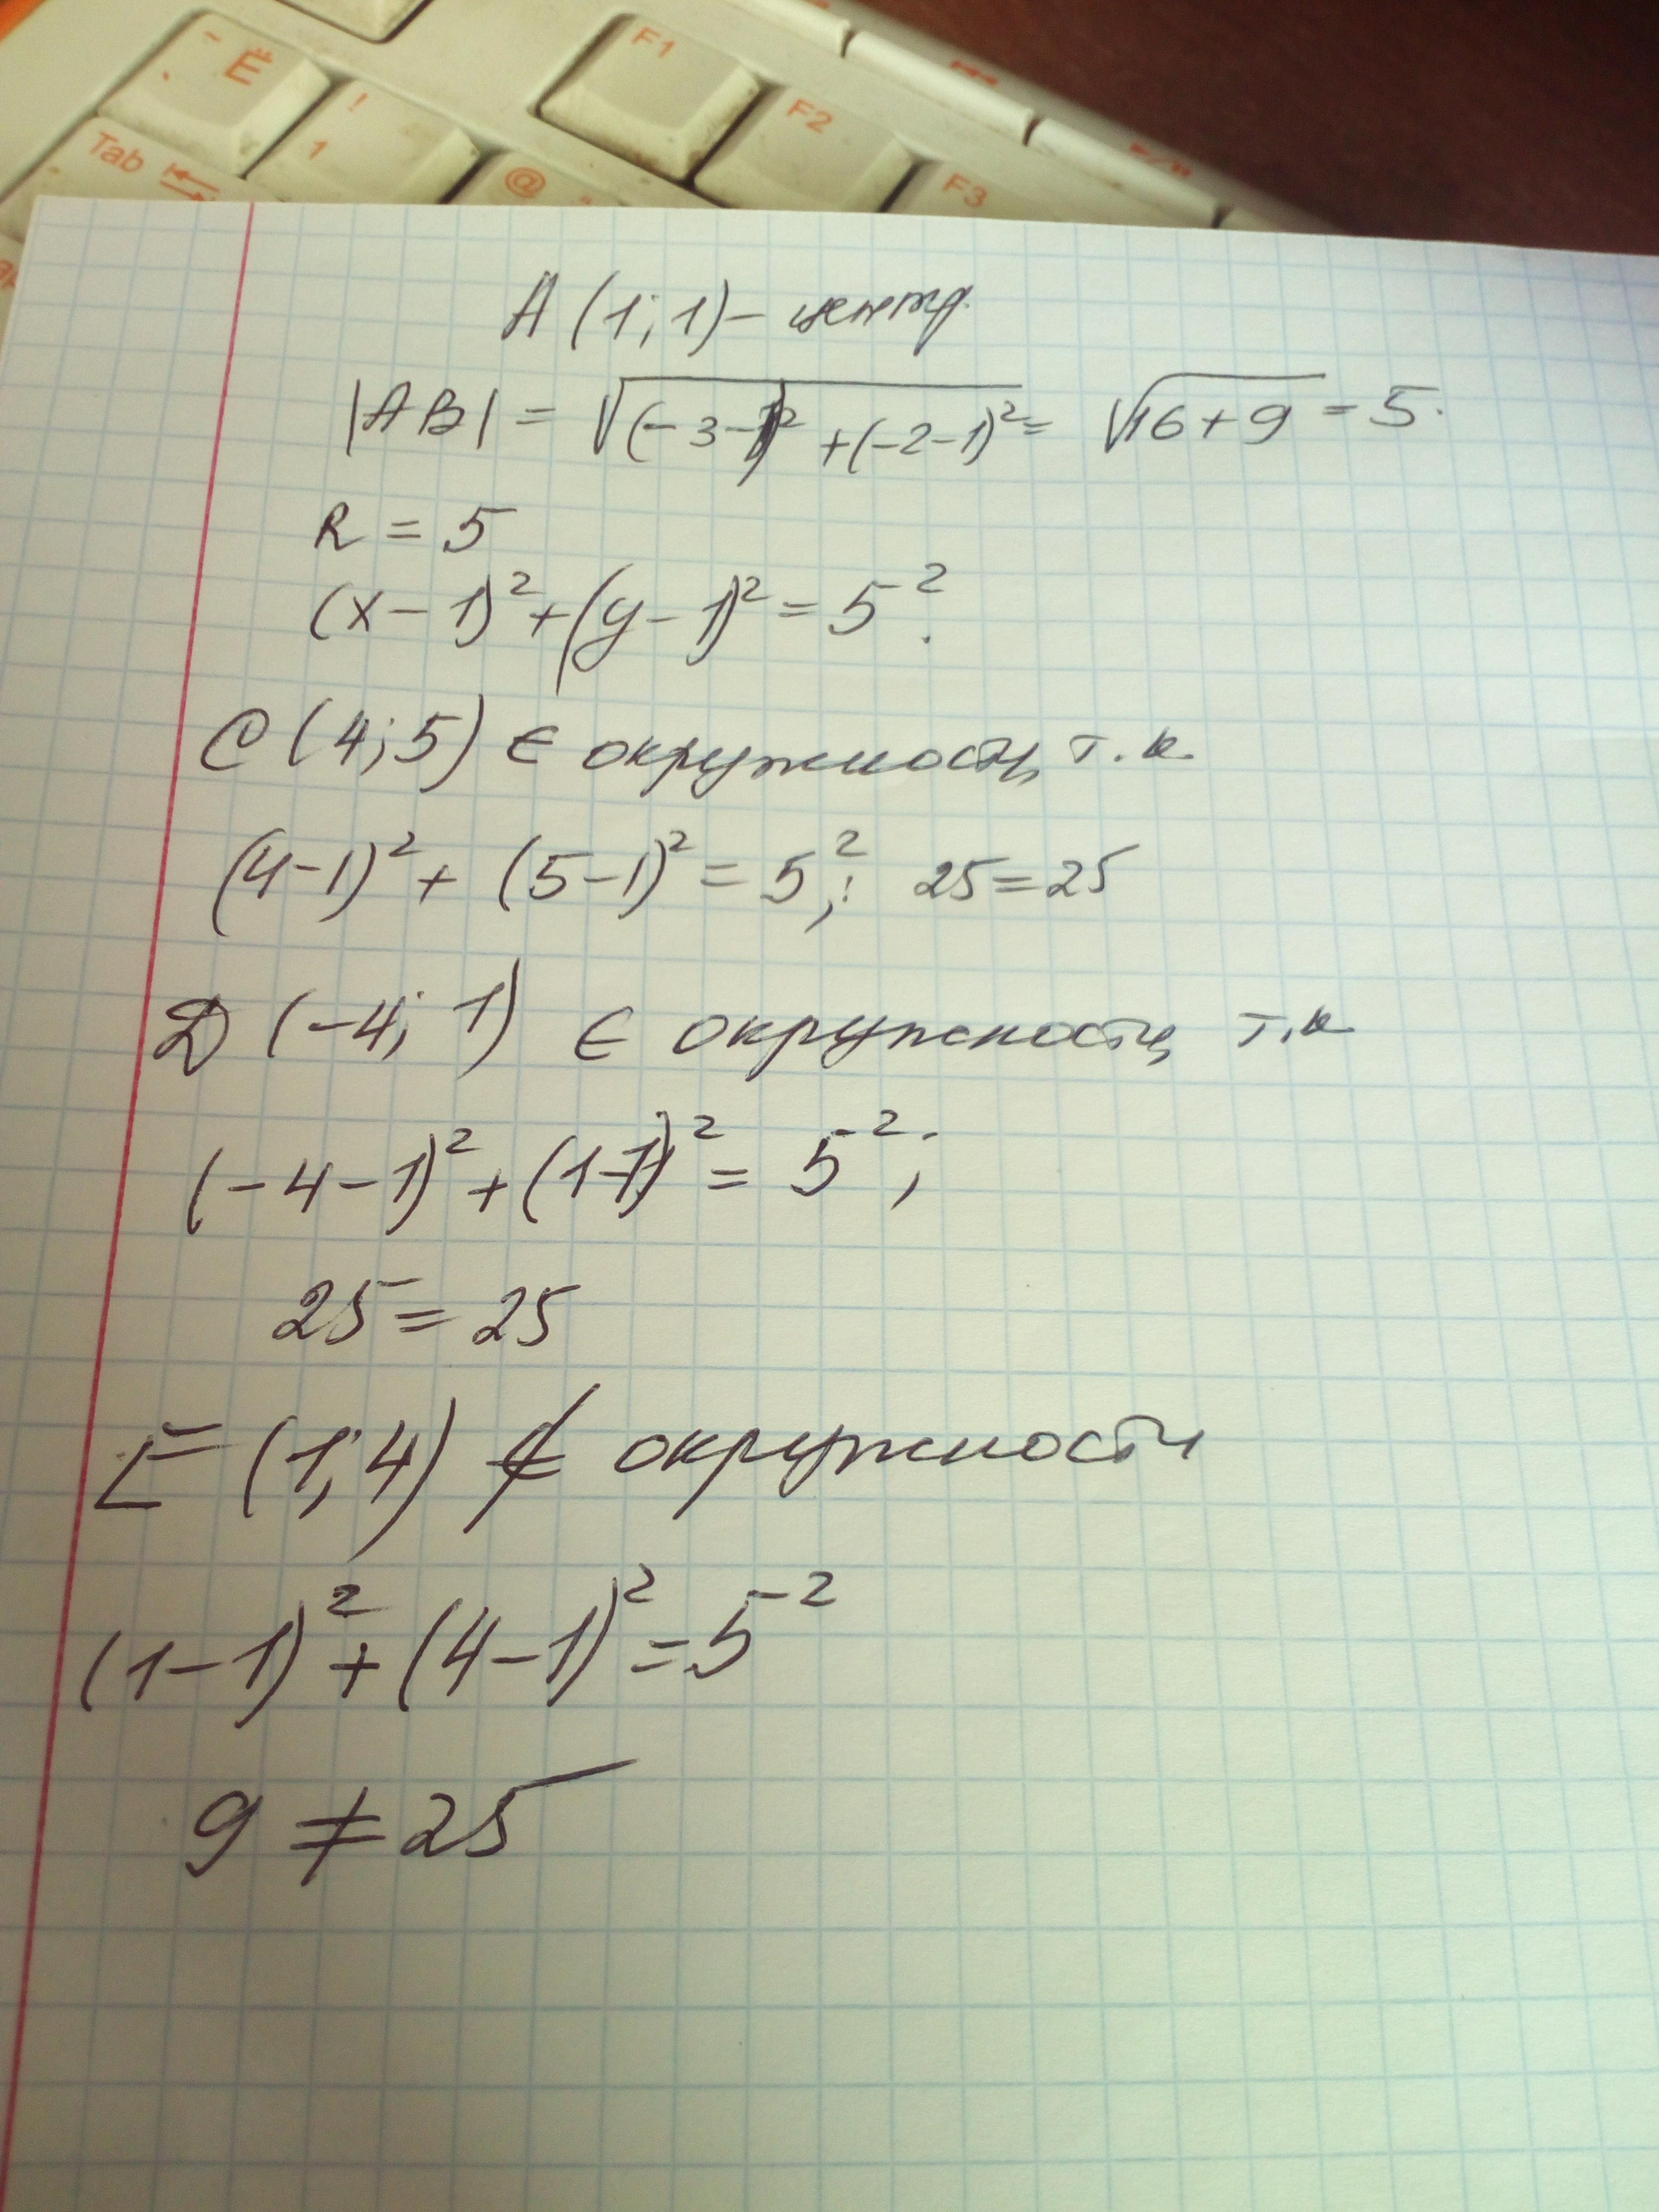 ~ Ё
! 1
F1
F2
F3
Tab
@
A (1; 1) – центр.
|AB| = √((-3-1)² + (-2-1)²) = √(16+9) = 5.
R = 5
(x – 1)² + (y – 1)² = 5².
C (4; 5) ∈ окружности, т.к.
(4-1)² + (5-1)² = 5²; 25 = 25
D (-4; 1) ∈ окружности, т.к
(-4-1)² + (1-1)² = 5²;
25 = 25
E (1; 4) ∉ окружности
(1-1)² + (4-1)² = 5²
9 ≠ 25